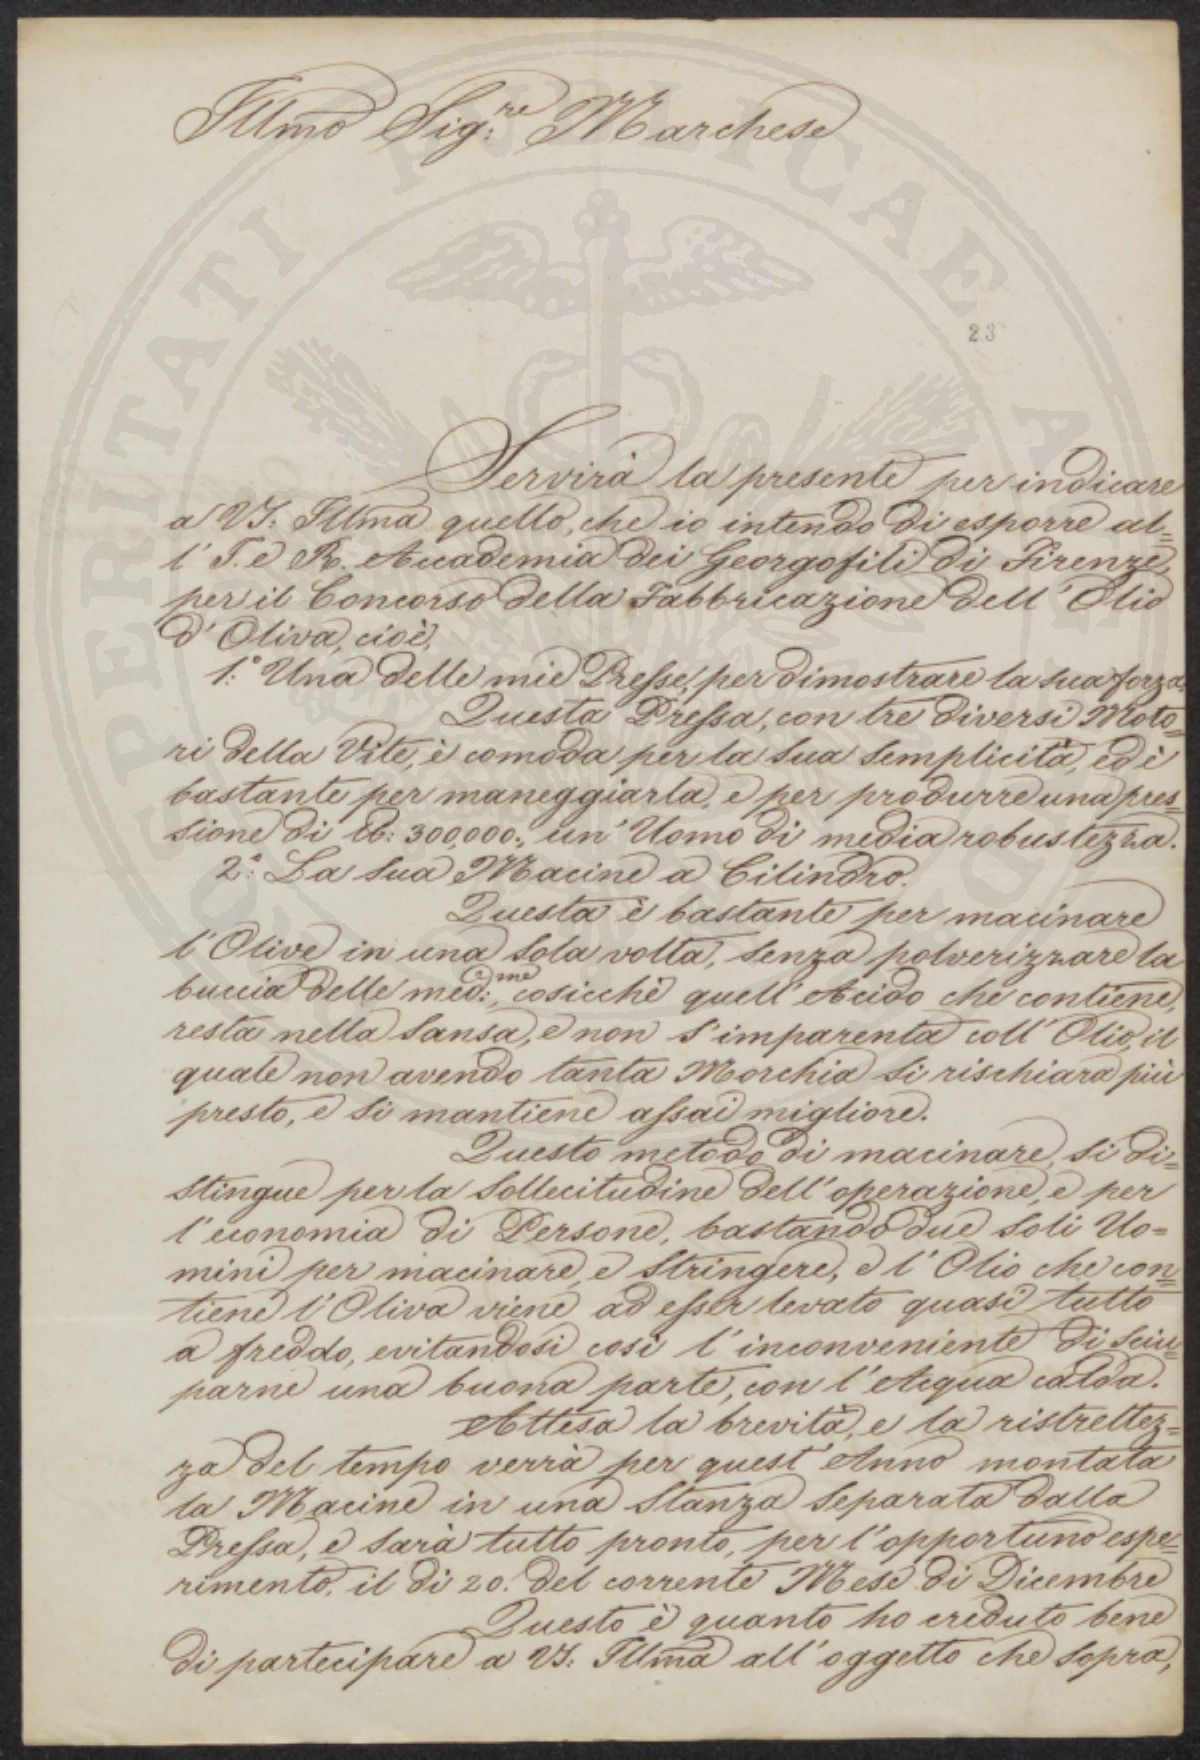 Illmo Sig:re Marchese
23
Servirà la presente per indicare
a VS: Illma quello, che io intendo di esporre al=
l' I. e R. Accademia dei Georgofili di Firenze,
per il Concorso della Fabbricazione dell' Olio
d' Oliva, cioè,
1:° Una delle mie Presse, per dimostrare la sua forza,
Questa Pressa, con tre diversi Moto=
ri della Vite, è comoda per la sua semplicità, ed è
bastante per maneggiarla, e per produrre una pres=
sione di lb: 300,000:, un' Uomo di media robustezza.
2:° La sua Macine a Cilindro.
Questa è bastante per macinare
l' Olive in una sola volta, senza polverizzare la
buccia delle med:eme, cosicchè quell' Acido che contiene,
resta nella Sansa, e non s' imparenta coll' Olio, il
quale non avendo tanta Morchia si rischiara più
presto, e si mantiene assai migliore.
Questo metodo di macinare, si di=
stingue per la sollecitudine dell' operazione, e per
l' economia di Persone, bastando due soli Uo=
mini per macinare, e stringere, e l' Olio che con=
tiene l' Oliva viene ad esser levato quasi tutto
a freddo, evitandosi così l' inconveniente di sciu=
parne una buona parte, con l' Acqua calda.
Attesa la brevità, e la ristrettez=
za del tempo verrà per quest' Anno montata
la Macine in una Stanza separata dalla
Pressa, e sarà tutto pronto, per l' opportuno espe=
rimento, il dì 20. del corrente Mese di Dicembre
Questo è quanto ho creduto bene
di partecipare a VS: Illma all' oggetto che sopra,
PERITATI PUBLICAE